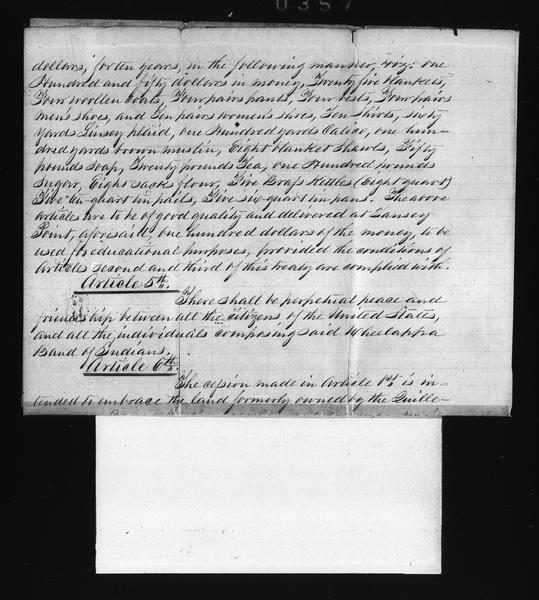 0357
dollars, for ten years, in the following manner, viz: one
Hundred and fifty dollars in money, Twenty five blankets,
Four woollen coats, Four pairs pants, Four vests, Four pairs
mens shoes, and Ten pairs womens shoes, Ten Shirts, sixty
yards Linsey plaid, one Hundred yards Calico, one hun-
dred yards brown muslin, Eight blanket Shawls, Fifty
pounds soap, Twenty pounds Tea, one Hundred pounds
sugar, Eight sack flour, Five Brass Kettles (Eight quart)
Five ten quart tin pails, Five six quart tin pans. The above
articles are to be of good quality and delivered at Tansey
Point, aforesaid: one hundred dollars of the money, to be
used for educational purposes, provided the conditions of
Articles second and third of this treaty are complied with.
Article 5th.
There shall be perpetual peace and
friendship between all the citizens of the United States,
and all the individuals composing said Wheelappa
Band of Indians.
Article 6th.
The cession made in Article 1st is in-
tended to embrace the land formerly owned by the Quille-